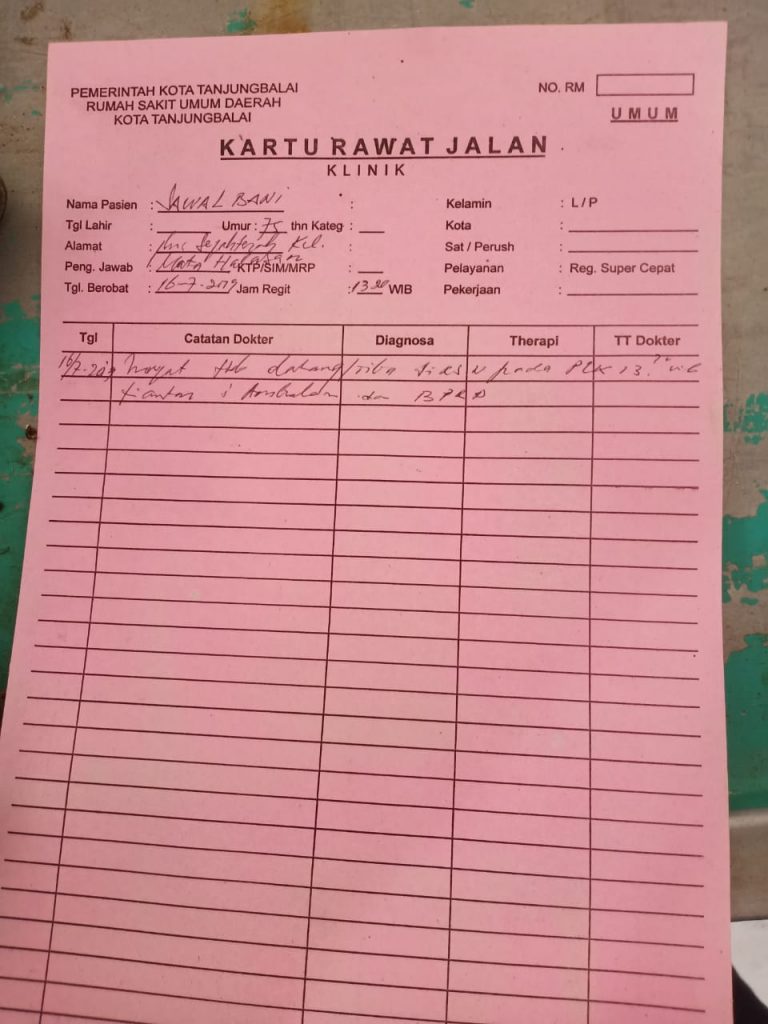 PEMERINTAH KOTA TANJUNGBALAI
RUMAH SAKIT UMUM DAERAH
KOTA TANJUNGBALAI
NO. RM
UMUM
KARTU RAWAT JALAN
KLINIK
Nama Pasien : JAWAL BANI :
Kelamin : L/P
Tgl Lahir : Umur : 75 thn Kateg :
Kota :
Alamat : Kel. :
Sat / Perush :
Peng. Jawab : Mata Halasan KTP/SIM/MRP :
Pelayanan : Reg. Super Cepat
Tgl. Berobat : 16-7-2019 Jam Regit : 13 20 WIB
Pekerjaan :
Tgl Catatan Dokter Diagnosa Therapi TT Dokter
16/7-2019 datang/tiba di RS pada PLK 13